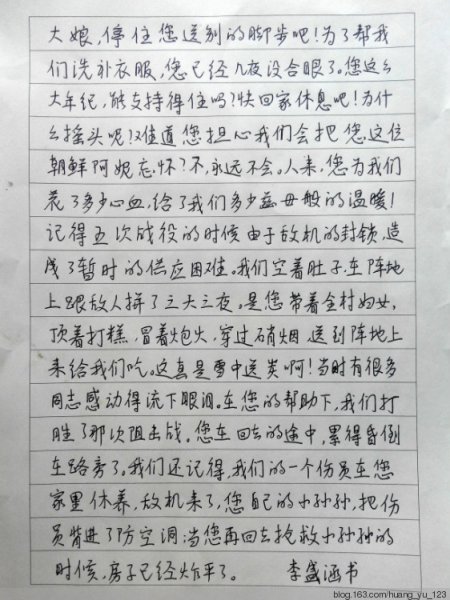 大娘,停住您送别的脚步吧!为了帮我
们洗补衣服,您已经几夜没合眼了。您这么
大年纪,能支持得住吗?快回家休息吧!为什
么摇头呢?难道您担心我们会把您这位
朝鲜阿妮忘怀?不,永远不会。人来,您为我们
花了多少心血,给了我们多少慈母般的温暖!
记得五次战役的时候由于敌机的封锁,造
成了暂时的供应困难。我们空着肚子,在阵地
上跟敌人拼了三天三夜。是您带着全村妇女,
顶着打糕,冒着炮火,穿过硝烟,送到阵地上
来给我们吃。这真是雪中送炭啊!当时有很多
同志感动得流下眼泪。在您的帮助下,我们打
胜了那次阻击战。您在回去的途中,累得昏倒
在路旁了。我们还记得,我们的一个伤员在您
家里休养,敌机来了,您自己的小孙孙,把伤
员背进了防空洞;当您再回去抢救小孙孙的
时候,房子已经炸平了。 李盛涵书
blog.163.com/huang_yu_123